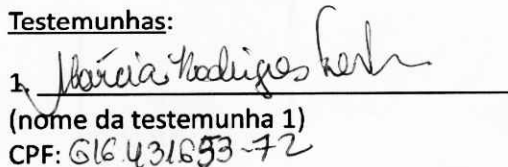 Testemunhas:
1. Márcia Rodrigues
(nome da testemunha 1)
CPF: 616.431653-72